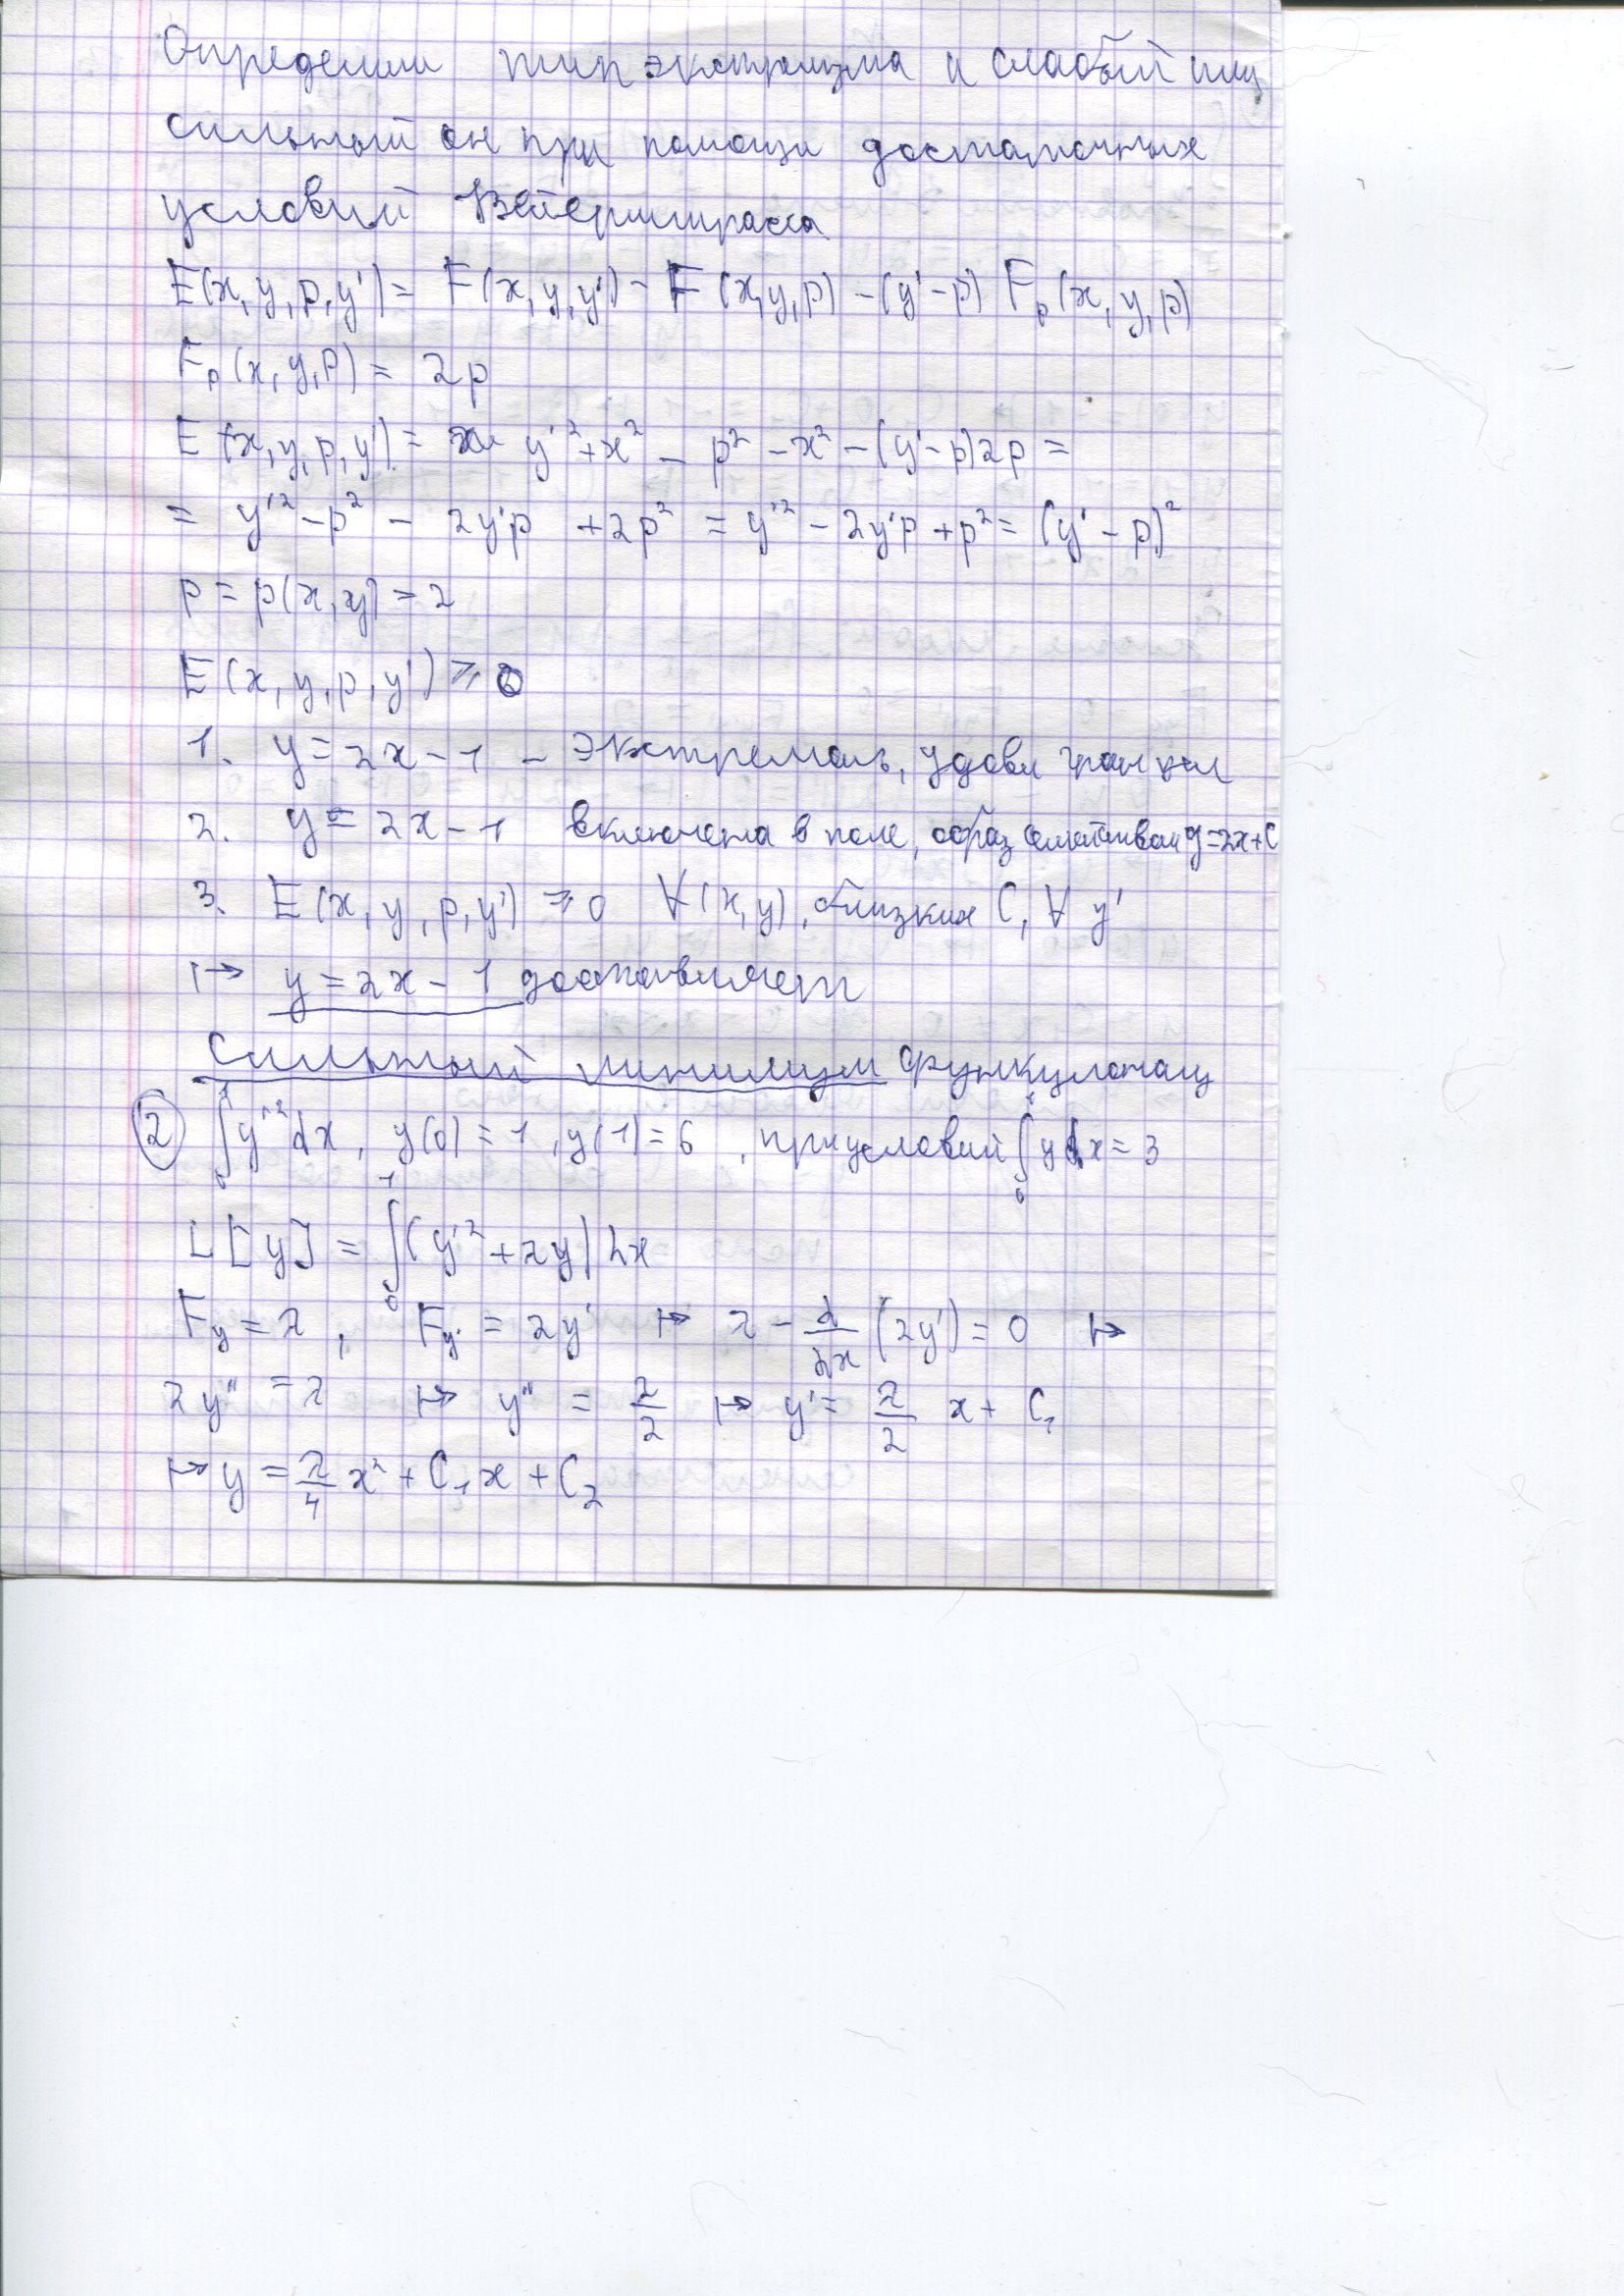 Определим тип экстремума и слабый или
сильный он при помощи достаточных
условий Вейерштрасса
E(x, y, p, y') = F(x, y, y') - F(x, y, p) - (y' - p) F_p(x, y, p)
F_p(x, y, p) = 2p
E(x, y, p, y') = y'² + x² - p² - x² - (y' - p)2p =
= y'² - p² - 2y'p + 2p² = y'² - 2y'p + p² = (y' - p)²
p = p(x, y) = 2
E(x, y, p, y') ≥ 0
1. y = 2x - 1 - экстремаль, удовл гран усл
2. y = 2x - 1 включена в поле, образ семейством y=2x+C
3. E(x, y, p, y') ≥ 0 ∀(x, y), близких C, ∀ y'
↦ y = 2x - 1 доставляет
сильный минимум функционалу
2 ∫₀¹ y'² dx, y(0) = 1, y(1) = 6, при условии ∫₀¹ y dx = 3
L[y] = ∫₀¹ (y'² + λy) dx
F_y = λ, F_y' = 2y' ↦ λ - d/dx (2y') = 0 ↦
2y'' = λ ↦ y'' = λ/2 ↦ y' = λ/2 x + C₁
↦ y = λ/4 x² + C₁x + C₂